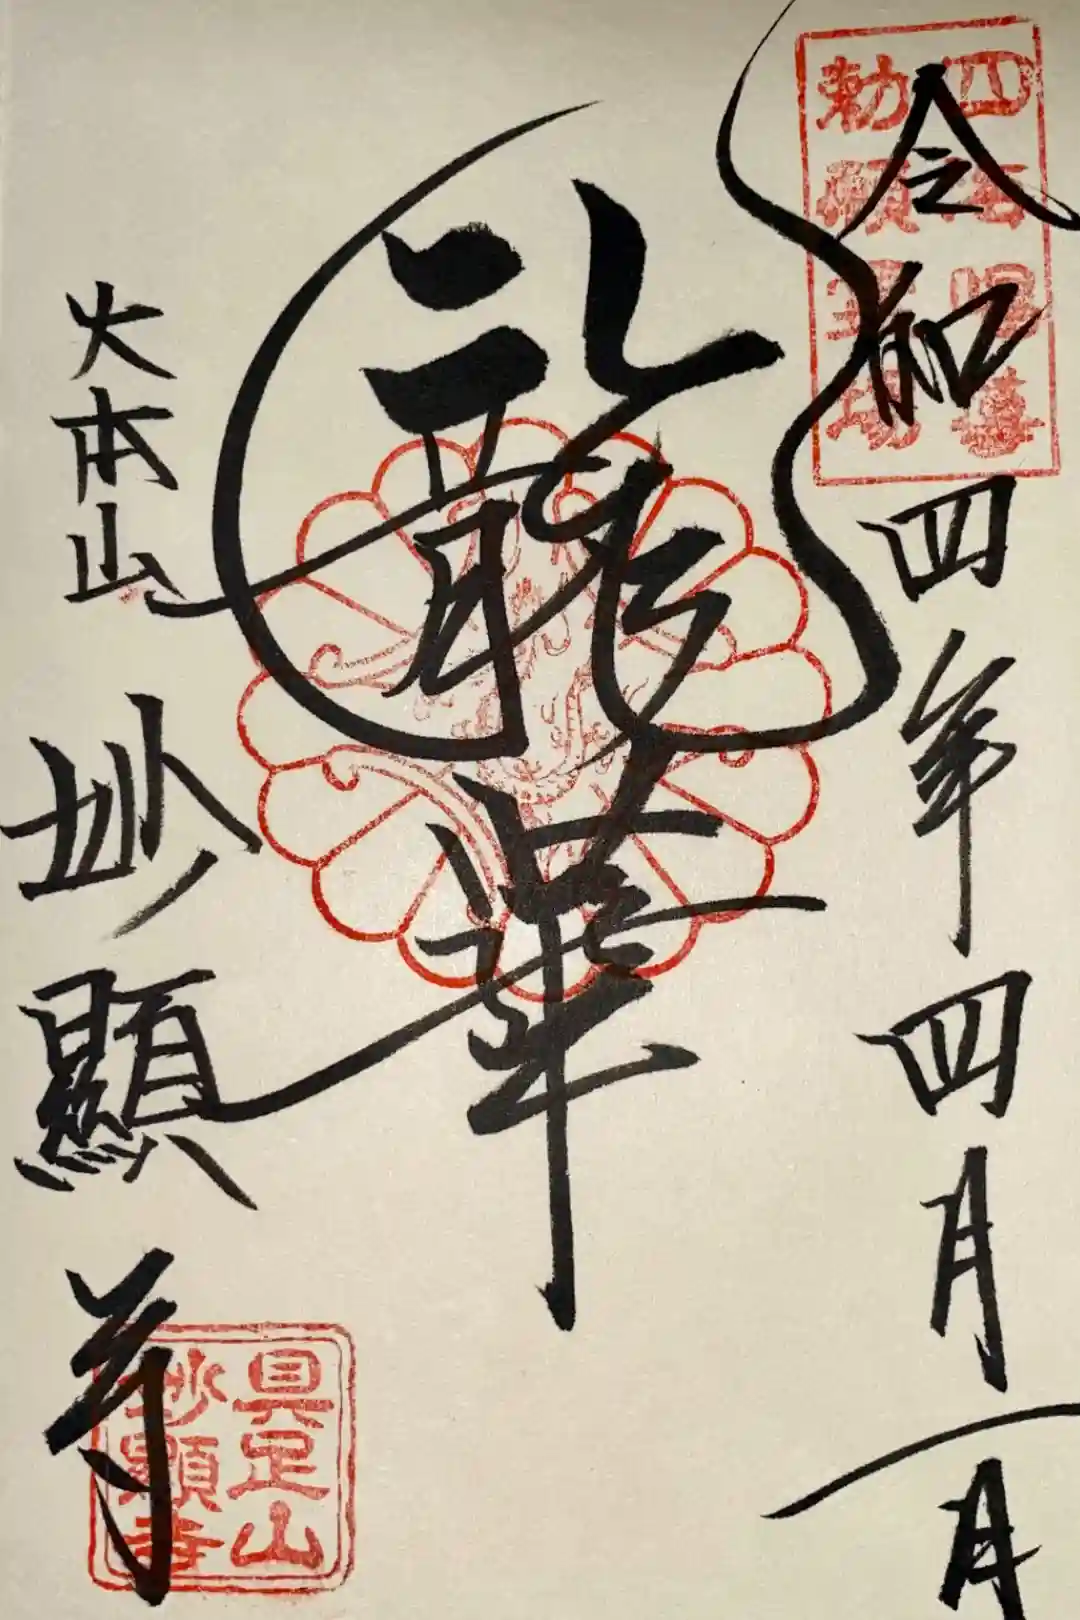 四海唱導
勅願道場
令和四年四月一日
龍華
大本山 妙顯寺
具足山
妙顯寺